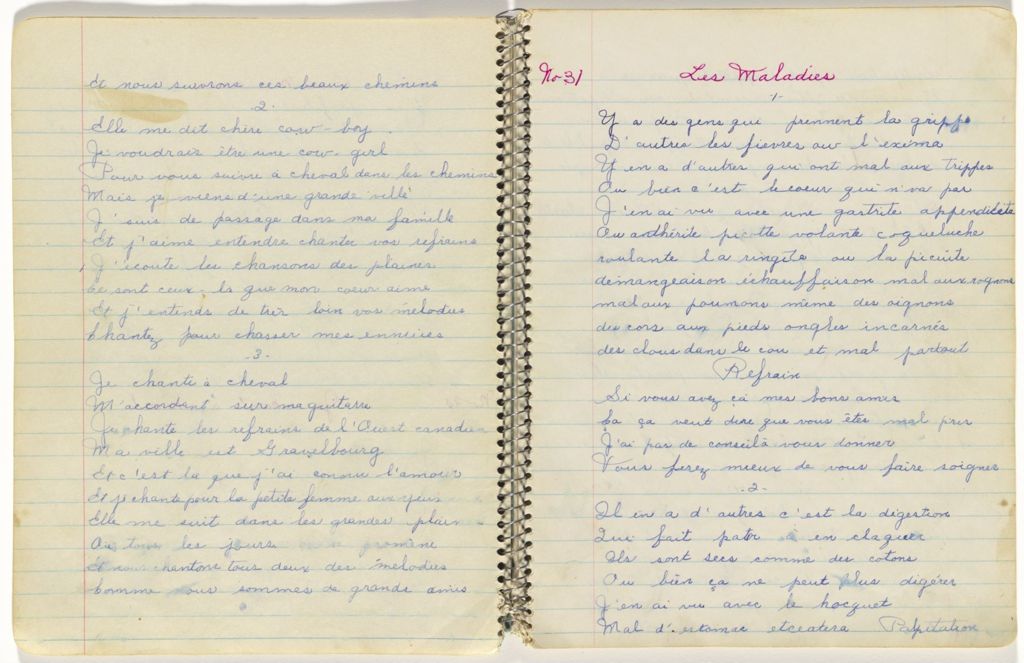 Et nous suivrons ces beaux chemins
2.
Elle me dit chère cow-boy.
Je voudrais être une cow-girl
Pour vous suivre à cheval dans les chemins
Mais je viens d'une grande ville
J'suis de passage dans ma famille
Et j'aime entendre chanter vos refrains
J'écoute les chansons des plaines
Ce sont ceux-la que mon coeur aime
Et j'entends de très loin vos mélodies
Chantez pour chasser mes ennuies
3.
Je chante à cheval
M'accordant sur ma guitarre
Je chante les refrains de l'Ouest canadien
Ma ville est Gravelbourg
Et c'est la que j'ai connu l'amour
Et je chante pour la petite femme aux yeux
Elle me suit dans les grandes plain
Ou tous les jours on se promène
Et nous chantons tous deux des mélodies
Comme nous sommes de grands amis
No 31 Les Maladies
1-
Y a des gens qui prennent la grippe
D'autres les fièvres ou l'exéma
Y en a d'autres qui ont mal aux trippes
Ou bien c'est le coeur qui n'va pas
J'en ai vu avec une gastrite appendicite
Ou anthérite picotte volante coqueluche
roulante la ringite ou la picinite
démangeaison échauffaison mal aux rognons
mal aux poumons même des oignons
des cors aux pieds ongles incarnés
des clous dans le cou et mal partout
Refrain
Si vous avez ça mes bons amis
Ca ça veut dire que vous êtes mal pris
J'ai pas de conseil à vous donner
Vous ferez mieux de vous faire soigner
-2-
Il en a d'autres c'est la digestion
Qui fait patir à en claquer
Ils sont secs comme des cotons
Ou bien ça ne peut plus digérer
J'en ai vu avec le hocquet
Mal d'estomac etceatera Palpitation